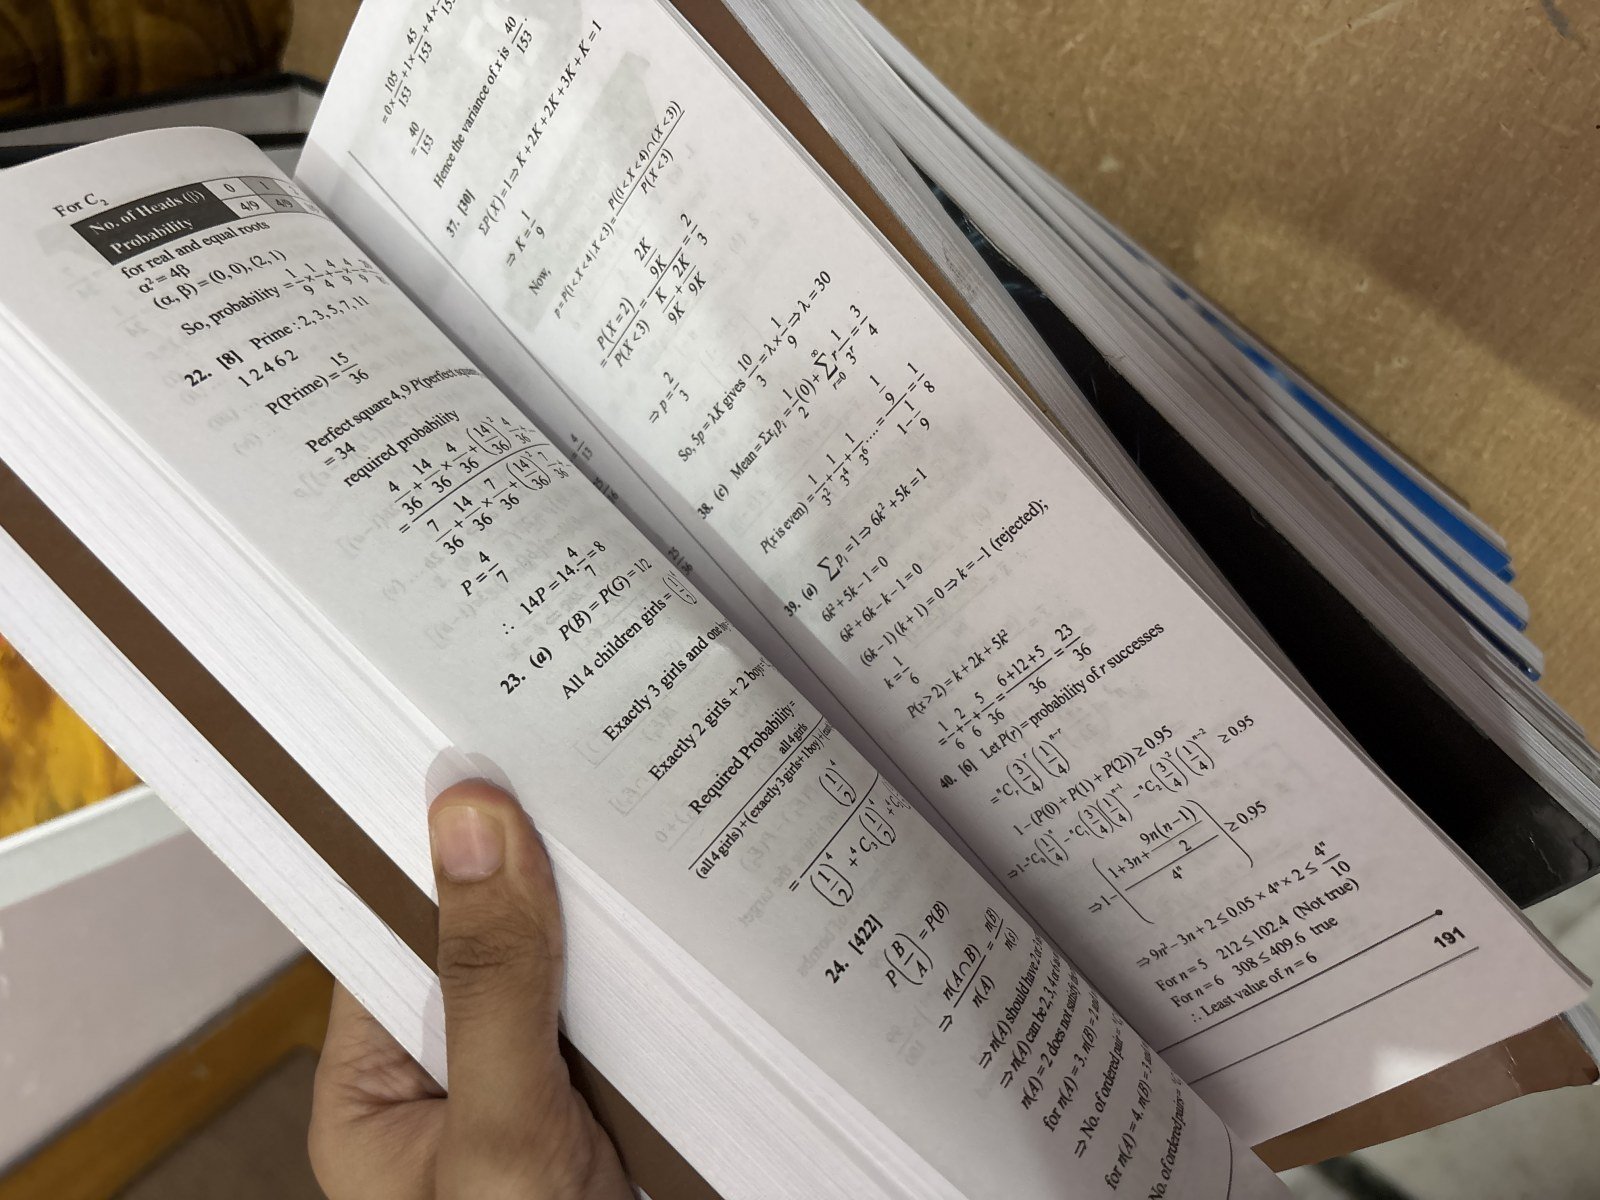 For C₂
No. of Heads (β) 0 1
Probability 4/9 4/9
for real and equal roots
α² = 4β
(α, β) = (0, 0), (2, 1)
So, probability = 1/9 × 1/4 + 4/9 × 4/9
22. [8] Prime : 2, 3, 5, 7, 11
1 2 4 6 2
P(Prime) = 15/36
Perfect square 4, 9 P(perfect square
= 34
required probability
= (4/36 + 14/36 × 4/36 + (14/36)² 4/36
7/36 + 14/36 × 7/36 + (14/36)² 7/36
P = 4/7
∴ 14P = 14. 4/7 = 8
23. (a) P(B) = P(G) = 1/2
All 4 children girls = (1/2)⁴
Exactly 3 girls and one
Exactly 2 girls + 2 boy
Required Probability =
all 4 girls
(all 4 girls) + (exactly 3 girls + 1 boy) +
= (1/2)⁴
(1/2)⁴ + ⁴C₃ (1/2)⁴ +
24. [422]
P(B/A) = P(B)
⇒ n(A∩B)/n(A) = n(B)/n(s)
⇒ n(A) should have 2 or 3
⇒ n(A) can be 2, 3, 4
n(A) = 2 does not satisfy
for n(A) = 3. n(B) = 2
⇒ No. of ordered pair =
for n(A) = 4, n(B) = 3
No. of ordered pairs =
= 0 × 105/153 + 1 × 45/153 + 4 ×
= 40/153
Hence the variance of x is 40/153.
37. [30]
ΣP(X) = 1 ⇒ K + 2K + 2K + 3K + K = 1
⇒ K = 1/9
Now,
p = P(1 < X < 4 | X < 3) = P((1 < X < 4) ∩ (X < 3)) / P(X < 3)
= P(X = 2)/P(X < 3) = (2K/9K)/(K/9K + 2K/9K) = 2/3
⇒ p = 2/3
So, 5p = λK gives 10/3 = λ × 1/9 ⇒ λ = 30
38. (c) Mean = Σxᵢpᵢ = 1/2 (0) + ∞ Σ r=0 r 1/3ʳ = 3/4
P(x is even) = 1/3² + 1/3⁴ + 1/3⁶ .... = (1/9)/(1 - 1/9) = 1/8
39. (a) Σpᵢ = 1 ⇒ 6k² + 5k = 1
6k² + 5k – 1 = 0
6k² + 6k – k – 1 = 0
(6k – 1) (k + 1) = 0 ⇒ k = –1 (rejected);
k = 1/6
P(x > 2) = k + 2k + 5k²
= 1/6 + 2/6 + 5/36 = (6+12+5)/36 = 23/36
40. [6] Let P(r) = probability of r successes
= ⁿCᵣ (3/4)ʳ (1/4)ⁿ⁻ʳ
1 – (P(0) + P(1) + P(2)) ≥ 0.95
⇒ 1 – ⁿC₀ (1/4)ⁿ – ⁿC₁ (3/4)(1/4)ⁿ⁻¹ – ⁿC₂ (3/4)² (1/4)ⁿ⁻² ≥ 0.95
⇒ 1 – ((1 + 3n + 9n(n–1)/2)/4ⁿ) ≥ 0.95
⇒ 9n² – 3n + 2 ≤ 0.05 × 4ⁿ × 2 ≤ 4ⁿ/10
For n = 5 212 ≤ 102.4 (Not true)
For n = 6 308 ≤ 409.6 true
∴ Least value of n = 6
191